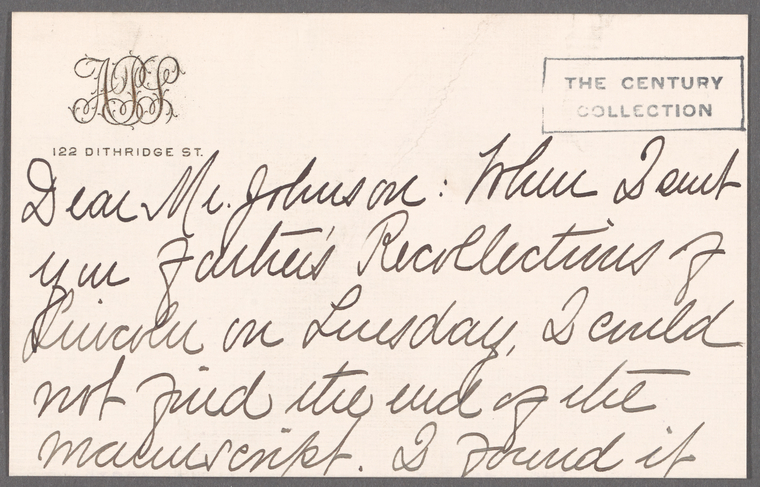 THE CENTURY
COLLECTION
122 DITHRIDGE ST.
Dear Mr. Johnson: When I sent
you father's Recollections of
Lincoln on Tuesday, I could
not find the end of the
manuscript. I found it